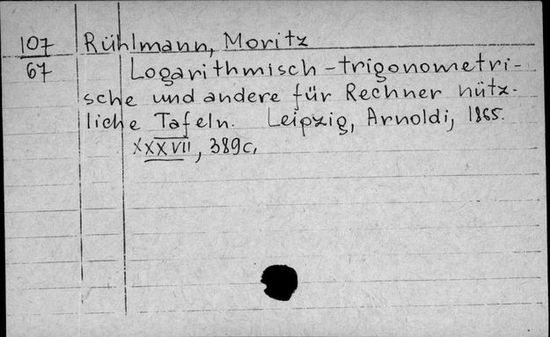 107 Rühlmann, Moritz
67 Logarithmisch-trigonometri-
sche und andere für Rechner nütz-
liche Tafeln. Leipzig, Arnoldi, 1865.
XXXVII, 389c,